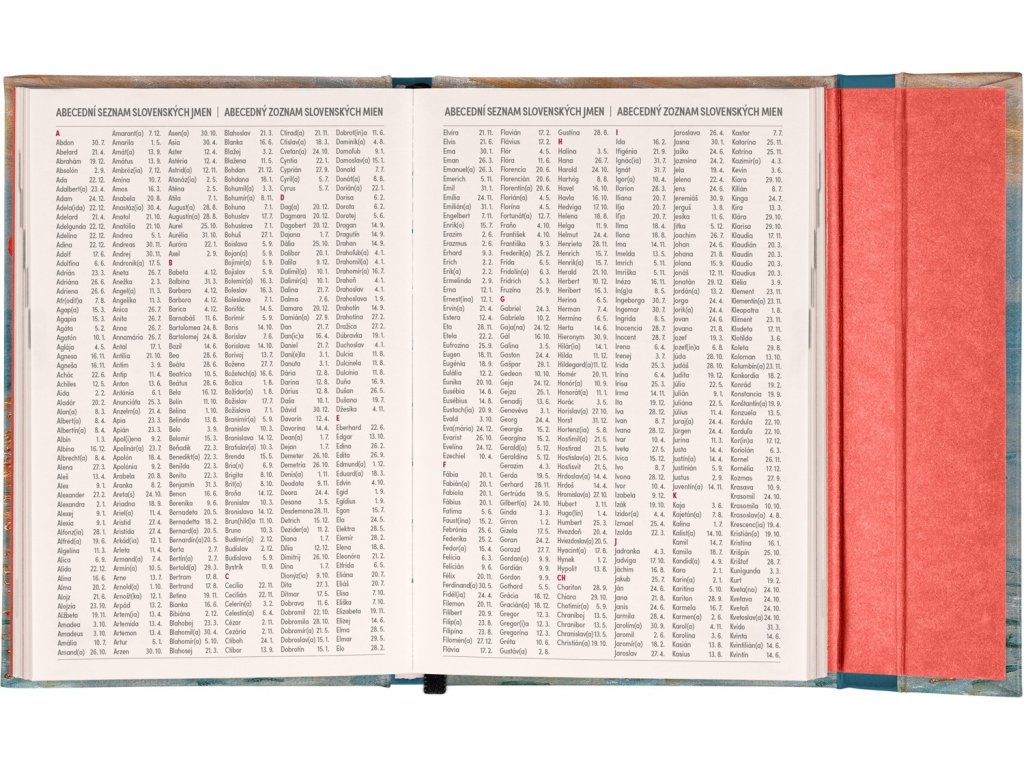 ABECEDNÍ SEZNAM SLOVENSKÝCH JMEN | ABECEDNÝ ZOZNAM SLOVENSKÝCH MIEN
A
Abdon 30. 7.
Abelard 21. 4.
Abrahám 19. 12.
Absolón 2. 9.
Ada 22. 12.
Adalbert(a) 23. 4.
Adam 24. 12.
Adela(ida) 22. 12.
Adelard 21. 4.
Adelgunda 22. 12.
Adelina 22. 12.
Adina 22. 12.
Adolf 17. 6.
Adolfína 6. 6.
Adrián 23. 3.
Adriána 26. 6.
Adriena 26. 6.
Afr(odit)a 7. 8.
Agap(a) 15. 3.
Agapia 15. 3.
Agáta 5. 2.
Agatón 10. 1.
Aglája 4. 5.
Agnesa 16. 11.
Agneša 16. 11.
Achác 22. 6.
Achiles 12. 5.
Aida 2. 2.
Aladár 20. 2.
Alan(a) 8. 3.
Albert(a) 8. 4.
Albertín(a) 8. 4.
Albín 1. 3.
Albína 16. 12.
Albrecht(a) 8. 4.
Alena 27. 3.
Aleš 13. 4.
Alex 9. 1.
Alexander 27. 2.
Alexandra 2. 1.
Alexej 9. 1.
Alexia 9. 1.
Alfonz(ia) 28. 1.
Alfréd(a) 19. 6.
Algelína 11. 3.
Alica 6. 9.
Alida 22. 12.
Alina 16. 6.
Alma 20. 2.
Alojz 21. 6.
Alojzia 23. 10.
Alžbeta 19. 11.
Amadea 3. 10.
Amadeus 3. 10.
Amália 10. 7.
Amand(a) 26. 10.
Amarant(a) 7. 12.
Amarila 1. 5.
Amát(a) 13. 9.
Amátus 13. 9.
Ambróz(ia) 7. 12.
Amína 10. 7.
Amos 16. 3.
Anabela 20. 8.
Anastáz(ia) 30. 4.
Anatol 21. 10.
Anatólia 21. 10.
Andrea 5. 1.
Andreas 30. 11.
Andrej 30. 11.
Andronik(a) 17. 5.
Aneta 26. 7.
Anežka 2. 3.
Angel(a) 11. 3.
Angelika 11. 3.
Anica 26. 7.
Anita 26. 7.
Anna 26. 7.
Annamária 26. 7.
Antal 17. 1.
Antília 21. 10.
Antim 3. 9.
Antip 11. 4.
Anton 13. 6.
Antónia 6. 1.
Anunciáta 25. 3.
Anzelm(a) 21. 4.
Apia 23. 3.
Apián 23. 3.
Apol(i)ena 9. 2.
Apolinár(a) 23. 7.
Apolón 18. 4.
Apolónia 9. 2.
Arabela 20. 8.
Aranka 8. 2.
Areta(s) 24. 10.
Ariadna 18. 9.
Ariel(a) 11. 4.
Aristid 27. 4.
Aristída 27. 4.
Arkád(ia) 12. 1.
Arleta 11. 4.
Armand(a) 7. 4.
Armín(a) 10. 5.
Arne 13. 7.
Arnold(a) 1. 10.
Arnošt(ka) 12. 1.
Arpád 13. 2.
Artem(ia) 13. 4.
Artemida 13. 4.
Artemon 13. 4.
Artur 5. 1.
Arzen 30. 10.
Asen(a) 30. 10.
Asia 30. 4.
Aster 12. 4.
Astéria 12. 4.
Astrid(a) 12. 11.
Atanáz(ia) 2. 5.
Aténa 2. 5.
Atila 7. 1.
August(a) 28. 8.
Augustín(a) 28. 8.
Aurel 25. 10.
Aurélia 31. 10.
Auróra 22. 1.
Axel 2. 9.
B
Babeta 4. 12.
Balbína 31. 3.
Barbara 4. 12.
Barbora 4. 12.
Barica 4. 12.
Barnabáš 11. 6.
Bartolomea 24. 8.
Bartolomej 24. 8.
Bazil 14. 6.
Bea 28. 6.
Beáta 28. 6.
Beatrica 10. 5.
Beátus 28. 6.
Bela 16. 12.
Belín 11. 10.
Belina 1. 10.
Belinda 13. 8.
Belo 3. 9.
Belomír 15. 3.
Beňadik 22. 3.
Benedikt(a) 22. 3.
Benilda 22. 3.
Benita 22. 3.
Benjamín 31. 3.
Benon 16. 6.
Berenika 9. 3.
Bernadeta 20. 5.
Bernadetta 18. 2.
Bernard(a) 20. 5.
Bernardín(a) 20. 5.
Berta 2. 7.
Bertín(a) 2. 7.
Bertold(a) 29. 3.
Bertram 17. 8.
Bertrand 17. 8.
Betina 19. 11.
Bianka 16. 6.
Bibiána 2. 12.
Blahoboj 23. 3.
Blahomil(a) 30. 4.
Blahomír(a) 5. 10.
Blahosej 21. 3.
Blahoslav 21. 3.
Blanka 16. 6.
Blažej 3. 2.
Blažena 11. 5.
Bohdan 21. 12.
Bohdana 18. 1.
Bohumil(a) 3. 3.
Bohumír(a) 8. 11.
Bohuna 7. 1.
Bohuslav 17. 7.
Bohuslava 7. 1.
Bohuš 27. 1.
Boislava 5. 9.
Bojan(a) 5. 9.
Bojimír(a) 5. 9.
Bojislav 5. 9.
Bolemír(a) 16. 3.
Boleslav 16. 3.
Boleslava 7. 1.
Boniface 14. 5.
Borimír 5. 9.
Boris 14. 10.
Borislav 7. 6.
Borislava 14. 10.
Borivoj 13. 7.
Božena 27. 7.
Božetech(a) 16. 6.
Božica 1. 8.
Božidar(a) 1. 8.
Božislav 17. 7.
Božislava 7. 1.
Branimír(a) 5. 9.
Branislav 10. 3.
Branislava 14. 12.
Bratislav(a) 10. 3.
Brenda 15. 5.
Bria(n) 6. 9.
Brigita 8. 10.
Brit(a) 8. 10.
Broňa 14. 12.
Bronislav 9. 3.
Bronislava 14. 12.
Brun(hild)a 11. 10.
Bruno 10. 3.
Budimír(a) 2. 12.
Budislav 2. 12.
Budislava 5. 9.
Bystrík 11. 9.
C
Cecília 22. 11.
Cecilián 22. 11.
Celerín(a) 3. 2.
Celestín(a) 6. 4.
Cézar 2. 11.
Cezária 2. 11.
Ctiboh 24. 1.
Ctibor 13. 9.
Ctirad(a) 21. 11.
Ctislav(a) 18. 3.
Cvetan(a) 24. 10.
Cyntia 22. 1.
Cyprián 27. 9.
Cyril(a) 5. 7.
Cyrus 5. 7.
D
Dag(a) 20. 12.
Dagmara 20. 12.
Dagobert 20. 12.
Dajana 1. 7.
Dália 25. 10.
Dalibor 20. 1.
Dalila 9. 12.
Dalimil(a) 10. 1.
Dalimír(a) 10. 1.
Dalina 21. 7.
Dalma 7. 6.
Damara 20. 12.
Damián(a) 27. 9.
Dan 21. 7.
Dan(ic)a 16. 4.
Daniel 21. 7.
Dani(e)la 3. 1.
Danuta 3. 1.
Dária 12. 8.
Darina 12. 8.
Dárius 12. 8.
Daša 10. 1.
Dávid 30. 12.
Davorín 12. 4.
Davorína 14. 4.
Dean(a) 1. 7.
Dejan 10. 2.
Demeter 26. 10.
Demetria 26. 10.
Denis(a) 1. 1.
Deodata 9. 11.
Deora 24. 4.
Desana 3. 5.
Desdemona 28. 11.
Detrich 15. 12.
Dezider(a) 11. 2.
Diana 1. 7.
Dília 12. 12.
Dimitrij 26. 10.
Dina 1. 7.
Dionýz(a) 9. 10.
Dita 27. 3.
Ditmar 17. 5.
Dobrava 11. 6.
Dobromil 22. 11.
Dobromila 28. 10.
Dobromír(a) 21. 5.
Dobroslav(a) 15. 1.
Dobrotín 15. 1.
Dobrot(ín)a 11. 6.
Dominik(a) 4. 8.
Domoľub 9. 1.
Domoslav(a) 15. 1.
Donald 7. 7.
Donát(a) 8. 8.
Dorián(a) 22. 1.
Dorisa 6. 2.
Dorota 6. 2.
Dorotej 5. 6.
Dragan 14. 9.
Dragutín 14. 9.
Drahan 14. 9.
Draholub(a) 4. 1.
Drahomil(a) 4. 1.
Drahomír(a) 16. 7.
Drahoň 4. 1.
Drahoslav 4. 1.
Drahoslava 1. 9.
Drahotín 14. 9.
Drahotína 27. 2.
Dražica 27. 2.
Dúbravka 19. 1.
Duchoslav 4. 1.
Dulcia 11. 8.
Dulcínela 11. 8.
Dulcínia 11. 8.
Duňa 16. 9.
Dušan 26. 5.
Dušana 19. 7.
Džesika 4. 11.
E
Eberhard 22. 6.
Edgar 13. 10.
Edina 26. 2.
Edita 26. 9.
Edmund(a) 1. 12.
Eduard(a) 18. 3.
Edvin 4. 10.
Egid 1. 9.
Egídius 1. 9.
Egon 15. 7.
Ela 24. 5.
Elektra 28. 5.
Elemír 28. 2.
Elena 18. 8.
Eleonóra 21. 2.
Elfrída 6. 5.
Eliána 20. 7.
Eliáš 20. 7.
Elisa 7. 10.
Eliška 7. 10.
Elizabeta 19. 11.
Elizej 14. 6.
Elma 28. 5.
Elmar 29. 5.
Elo 28. 2.
ABECEDNÍ SEZNAM SLOVENSKÝCH JMEN | ABECEDNÝ ZOZNAM SLOVENSKÝCH MIEN
Elvíra 21. 11.
Elvis 21. 6.
Ema 30. 1.
Eman 26. 3.
Emanuel(a) 26. 3.
Emerich 5. 11.
Emil 31. 1.
Emília 24. 11.
Emilián(a) 31. 1.
Engelbert 7. 11.
Enrik(o) 15. 7.
Erazim 2. 6.
Erazmus 2. 6.
Erhard 9. 3.
Erich 2. 2.
Erik(a) 2. 2.
Ermelinda 2. 9.
Erna 12. 1.
Ernest(ína) 12. 1.
Ervín(a) 21. 4.
Estera 12. 4.
Eta 28. 11.
Etela 22. 2.
Eufrozína 25. 9.
Eugen 18. 11.
Eugénia 18. 9.
Eulália 12. 2.
Eunika 20. 10.
Eusébia 14. 8.
Eusébius 14. 8.
Eustach(ia) 20. 9.
Evald 3. 10.
Eva(mária) 24. 12.
Evarist 26. 10.
Evelína 24. 12.
Ezechiel 10. 4.
F
Fábia 20. 1.
Fabián(a) 20. 1.
Fabiola 20. 1.
Fábius 20. 1.
Fatima 5. 6.
Faust(ína) 15. 2.
Febrónia 25. 6.
Federika 25. 2.
Fedor(a) 15. 4.
Felícia 6. 3.
Felicián 9. 6.
Félix 20. 11.
Ferdinand(a) 30. 5.
Fidél(ia) 24. 4.
Filemon 20. 11.
Filibert 20. 9.
Filip(a) 23. 8.
Filipína 23. 8.
Filomén(a) 27. 12.
Flávia 17. 2.
Flavián 17. 2.
Flávius 17. 2.
Flór 4. 5.
Flóra 11. 6.
Florencia 20. 6.
Florencián 20. 6.
Florentín(a) 20. 6.
Florián(a) 4. 5.
Florína 4. 5.
Fortunát(a) 12. 7.
Fraňo 4. 10.
František 4. 10.
Františka 9. 3.
Frederik(a) 25. 2.
Frída 6. 5.
Fridolín(a) 6. 3.
Fridrich 5. 3.
Fruzína 25. 9.
G
Gabriel 24. 3.
Gabriela 10. 2.
Gaja(na) 24. 12.
Gál 16. 10.
Galina 3. 5.
Gaston 24. 4.
Gašpar 29. 1.
Gedeon 10. 10.
Geja 24. 12.
Gejza 25. 1.
Genadij 13. 6.
Genovéva 3. 1.
Georg 24. 4.
Georgia 15. 2.
Georgína 15. 2.
Gerald(a) 5. 12.
Geraldína 5. 12.
Gerazim 4. 3.
Gerda 19. 5.
Gerhard 28. 11.
Gertrúda 19. 5.
Gilbert(a) 24. 10.
Ginda 3. 3.
Girron 1. 2.
Gizela 17. 5.
Goran 24. 2.
Gorazd 27. 7.
Gordan(a) 9. 9.
Gordián 9. 9.
Gordon 9. 9.
Gothard 5. 5.
Grácia 18. 12.
Gracián(a) 18. 12.
Gregor 12. 3.
Gregor(i)a 12. 3.
Gregorína 12. 3.
Gréta 10. 6.
Gustáv(a) 2. 8.
Gustína 28. 8.
H
Halina 3. 5.
Hana 26. 7.
Harold 24. 10.
Hartvig 8. 8.
Havel 16. 10.
Havla 16. 10.
Hedviga 17. 10.
Helena 18. 8.
Helga 11. 9.
Helmut 24. 4.
Henrieta 28. 11.
Henrich 15. 7.
Henrik(a) 15. 7.
Herald 21. 10.
Herbert 10. 12.
Heribert 16. 3.
Herína 6. 5.
Herman 7. 4.
Hermína 6. 5.
Herta 14. 6.
Hieronym 30. 9.
Hilár(ia) 14. 1.
Hilda 11. 12.
Hildegard(a) 11. 12.
Homér 20. 11.
Honór(a) 10. 9.
Honorát(a) 11. 1.
Horác 3. 5.
Horislav(a) 27. 10.
Horst 31. 12.
Hortenz(ia) 5. 8.
Hostimil(a) 21. 5.
Hostirad 21. 5.
Hostislav(a) 21. 5.
Hostisvit 21. 5.
Hrdoslav(a) 14. 4.
Hrdoš 14. 4.
Hromislav(a) 27. 10.
Hubert 3. 11.
Hugo(lín) 1. 4.
Humbert 25. 3.
Hvezdoň 20. 4.
Hviezdoslav(a) 20. 5.
Hyacint(a) 17. 8.
Hynek 1. 2.
Hypolit 13. 8.
CH
Chariton 28. 9.
Chiara 29. 10.
Chotimír(a) 5. 9.
Chraniboj 13. 5.
Chranibor 13. 5.
Chranislav(a) 13. 5.
Christián(a) 19. 10.
I
Ida 16. 2.
Ifigénia 21. 9.
Ignác(ia) 31. 7.
Ignát 31. 7.
Igor(a) 10. 4.
Ilarion 28. 3.
Iliana 20. 7.
Iľja 20. 7.
Iľja 20. 7.
Ilma 18. 4.
Ilona 18. 8.
Ima 14. 11.
Imelda 13. 5.
Imrich 5. 11.
Imriška 5. 11.
Inéza 16. 11.
In(g)a 8. 5.
Ingeborga 30. 7.
Ingemar 30. 7.
Ingrida 8. 5.
Inocencia 28. 7.
Inocent 28. 7.
Irena 6. 4.
Irenej 3. 7.
Irida 25. 3.
Irína 6. 4.
Irisa 25. 3.
Irma 14. 11.
Ita 19. 11.
Iva 28. 12.
Ivan 8. 7.
Ivana 28. 12.
Ivar 10. 4.
Iveta 27. 5.
Ivica 15. 12.
Ivo 8. 7.
Ivona 28. 12.
Ivor 10. 4.
Izabela 9. 12.
Izák 19. 10.
Izidor(a) 4. 4.
Izmael 25. 4.
Izolda 22. 2.
J
Jadranka 4. 3.
Jadviga 17. 10.
Jáchim 16. 8.
Jakub 25. 7.
Ján 24. 6.
Jana 21. 8.
Janis 24. 6.
Jarmila 28. 4.
Jarolím(a) 30. 9.
Jaromil 2. 6.
Jaromír(a) 18. 2.
Jaroslav 27. 4.
Jaroslava 26. 4.
Jasna 30. 1.
Jaško 24. 6.
Jazmína 24. 2.
Jela 19. 4.
Jelena 22. 4.
Jens 24. 6.
Jeremiáš 30. 9.
Jerguš 3. 8.
Jesika 11. 6.
Jitka 5. 12.
Joachim 26. 7.
Johan 24. 6.
Johana 21. 8.
Jolana 15. 9.
Jonáš 12. 11.
Jonatán 29. 12.
Jordán(a) 13. 2.
Jorga 24. 4.
Jorik(a) 24. 4.
Jovan 24. 6.
Jovana 21. 8.
Jozef 19. 3.
Jozef(ín)a 6. 8.
Júda 28. 10.
Judáš 28. 10.
Judita 19. 12.
Júlia 22. 5.
Julián 9. 1.
Juliána 22. 5.
Július 11. 4.
Juraj(a) 24. 4.
Jürgen 24. 4.
Jurina 11. 3.
Justa 14. 4.
Justín(a) 14. 4.
Justinián 5. 9.
Justus 2. 9.
Juventín(a) 14. 11.
K
Kaja 3. 6.
Kajetán(a) 7. 8.
Kalina 1. 7.
Kalist(a) 14. 10.
Kamil 14. 7.
Kamila 18. 7.
Kandid(a) 4. 9.
Kara 2. 11.
Karin(a) 2. 1.
Karitína 5. 10.
Kariton 28. 9.
Karmela 16. 7.
Karmen(a) 2. 6.
Karol(a) 4. 11.
Karolína 3. 6.
Kasián 13. 8.
Kasius 13. 8.
Kastor 7. 7.
Katarína 25. 11.
Katrína 25. 11.
Kazimír(a) 4. 3.
Kevin 3. 6.
Kiara 29. 10.
Kilián 8. 7.
Kinga 24. 7.
Kira 13. 3.
Klára 29. 10.
Klarisa 29. 10.
Klaudia 17. 11.
Klaudián 20. 3.
Klaudín 20. 3.
Klaudio 20. 3.
Klaudius 20. 3.
Klélia 3. 9.
Klement 23. 11.
Klementín(a) 23. 11.
Kleopatra 1. 8.
Kliment 23. 11.
Klodeta 17. 11.
Klotilda 3. 6.
Koleta 29. 9.
Koloman 13. 10.
Kolumbín(a) 23. 11.
Konkordia 18. 2.
Konrád 19. 2.
Konstancia 19. 9.
Konštantín(a) 19. 9.
Konzuela 13. 5.
Kordula 22. 10.
Korduľa 22. 10.
Kor(in)a 17. 12.
Koriolán 6. 3.
Kornel 26. 11.
Kornélia 17. 12.
Kozmas 27. 9.
Krasava 10. 9.
Krasomil 24. 10.
Krasomila 10. 10.
Krasoslav(a) 8. 4.
Krescenc(ia) 19. 4.
Kristián(a) 19. 10.
Kristína 16. 1.
Krišpín 25. 10.
Krištof 28. 7.
Kunigunda 3. 3.
Kurt 19. 2.
Kveta(na) 24. 10.
Kvetava 24. 10.
Kvetoň 24. 10.
Kvetoslav(a) 24. 10.
Kvído 31. 3.
Kvinta 14. 6.
Kvintilián(a) 14. 6.
Kvintín 14. 6.